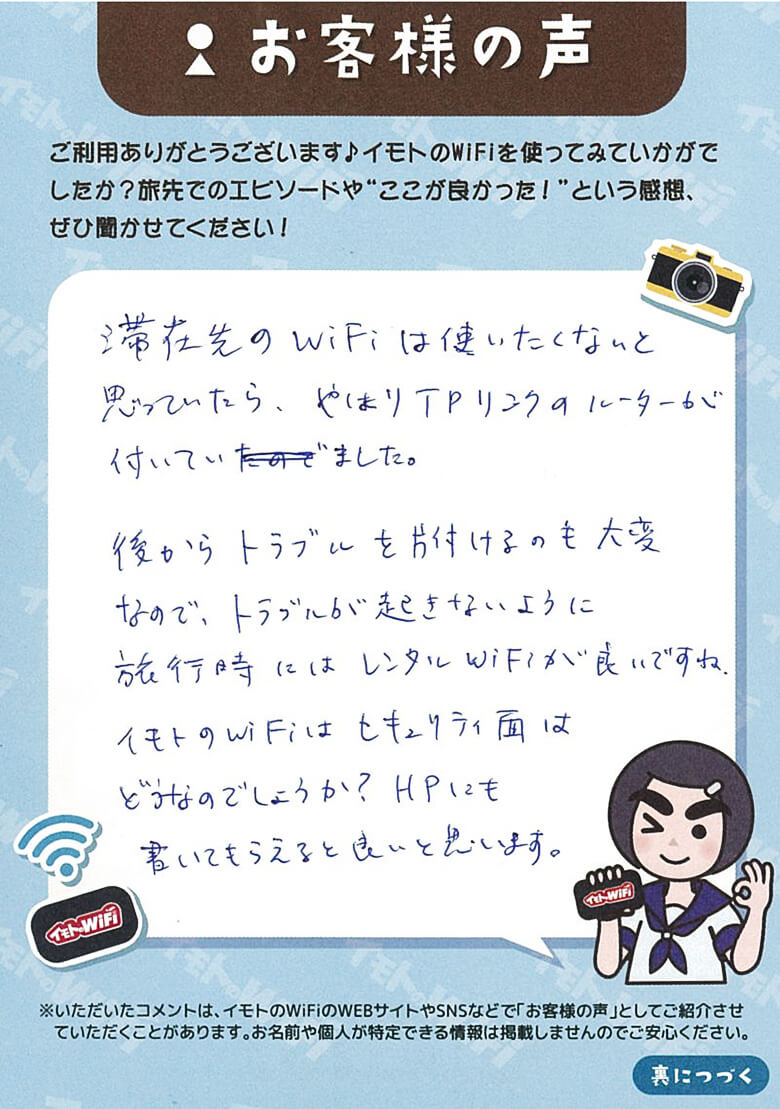 お客様の声
ご利用ありがとうございます♪イモトのWiFiを使ってみていかがで
したか？旅先でのエピソードや“ここが良かった！”という感想、
ぜひ聞かせてください！
滞在先のWiFiは使いたくないと
思っていたら、やはりTPリンクのルーターが
付いていたのでました。
後からトラブルを片付けるのも大変
なので、トラブルが起きないように
旅行時にはレンタルWiFiが良いですね。
イモトのWiFiはセキュリティ面は
どうなのでしょうか？HPにも
書いてもらえると良いと思います。
イモトのWiFi
イモトのWiFi
※いただいたコメントは、イモトのWiFiのWEBサイトやSNSなどで「お客様の声」としてご紹介させ
ていただくことがあります。お名前や個人が特定できる情報は掲載しませんのでご安心ください。
裏につづく